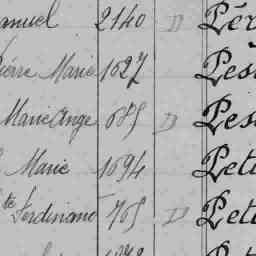 anuel 2140 D Pér
ierre Marie 1827 Pes
Marie Ange 685 D Pes
Marie 1694 Pet
te Ferdinand 765 D Pet